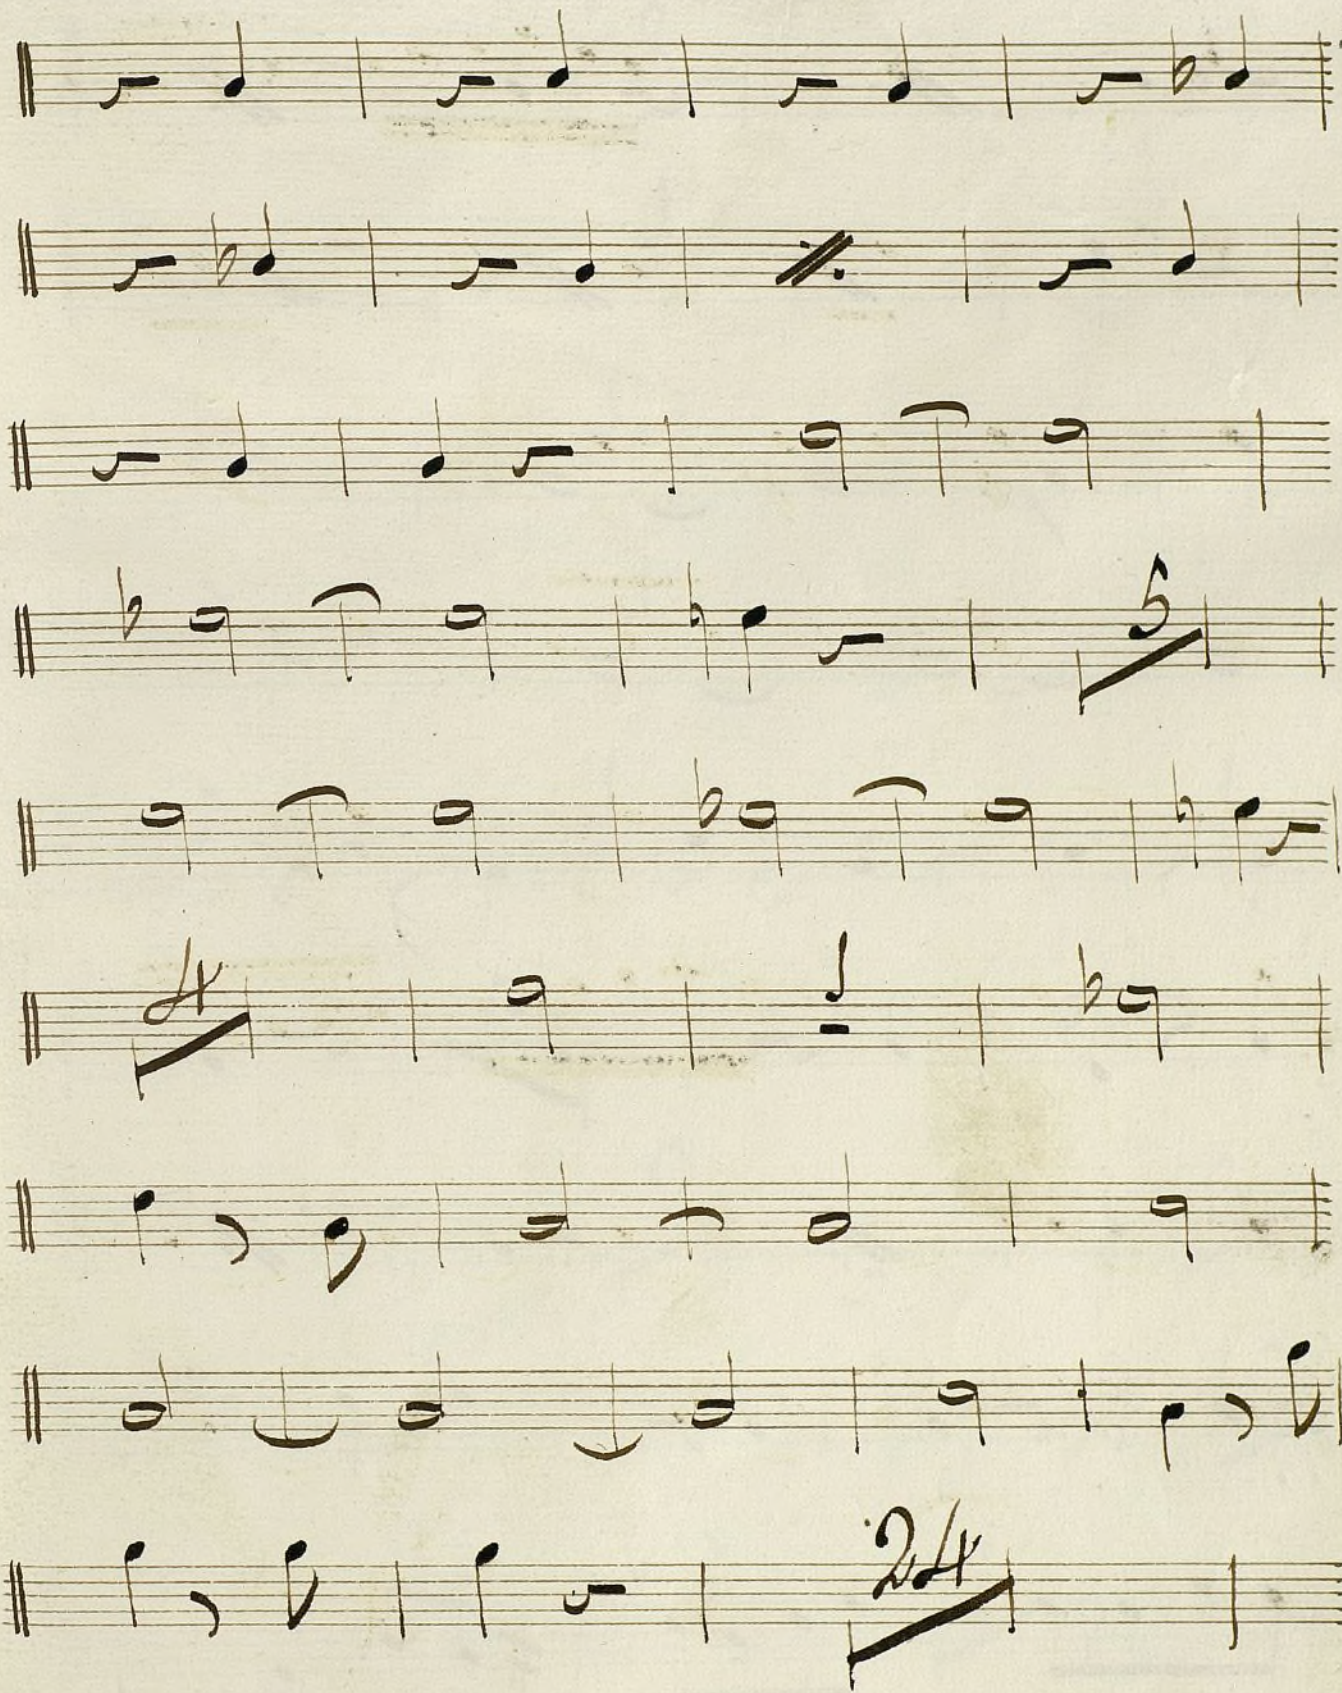 5
4
1
24